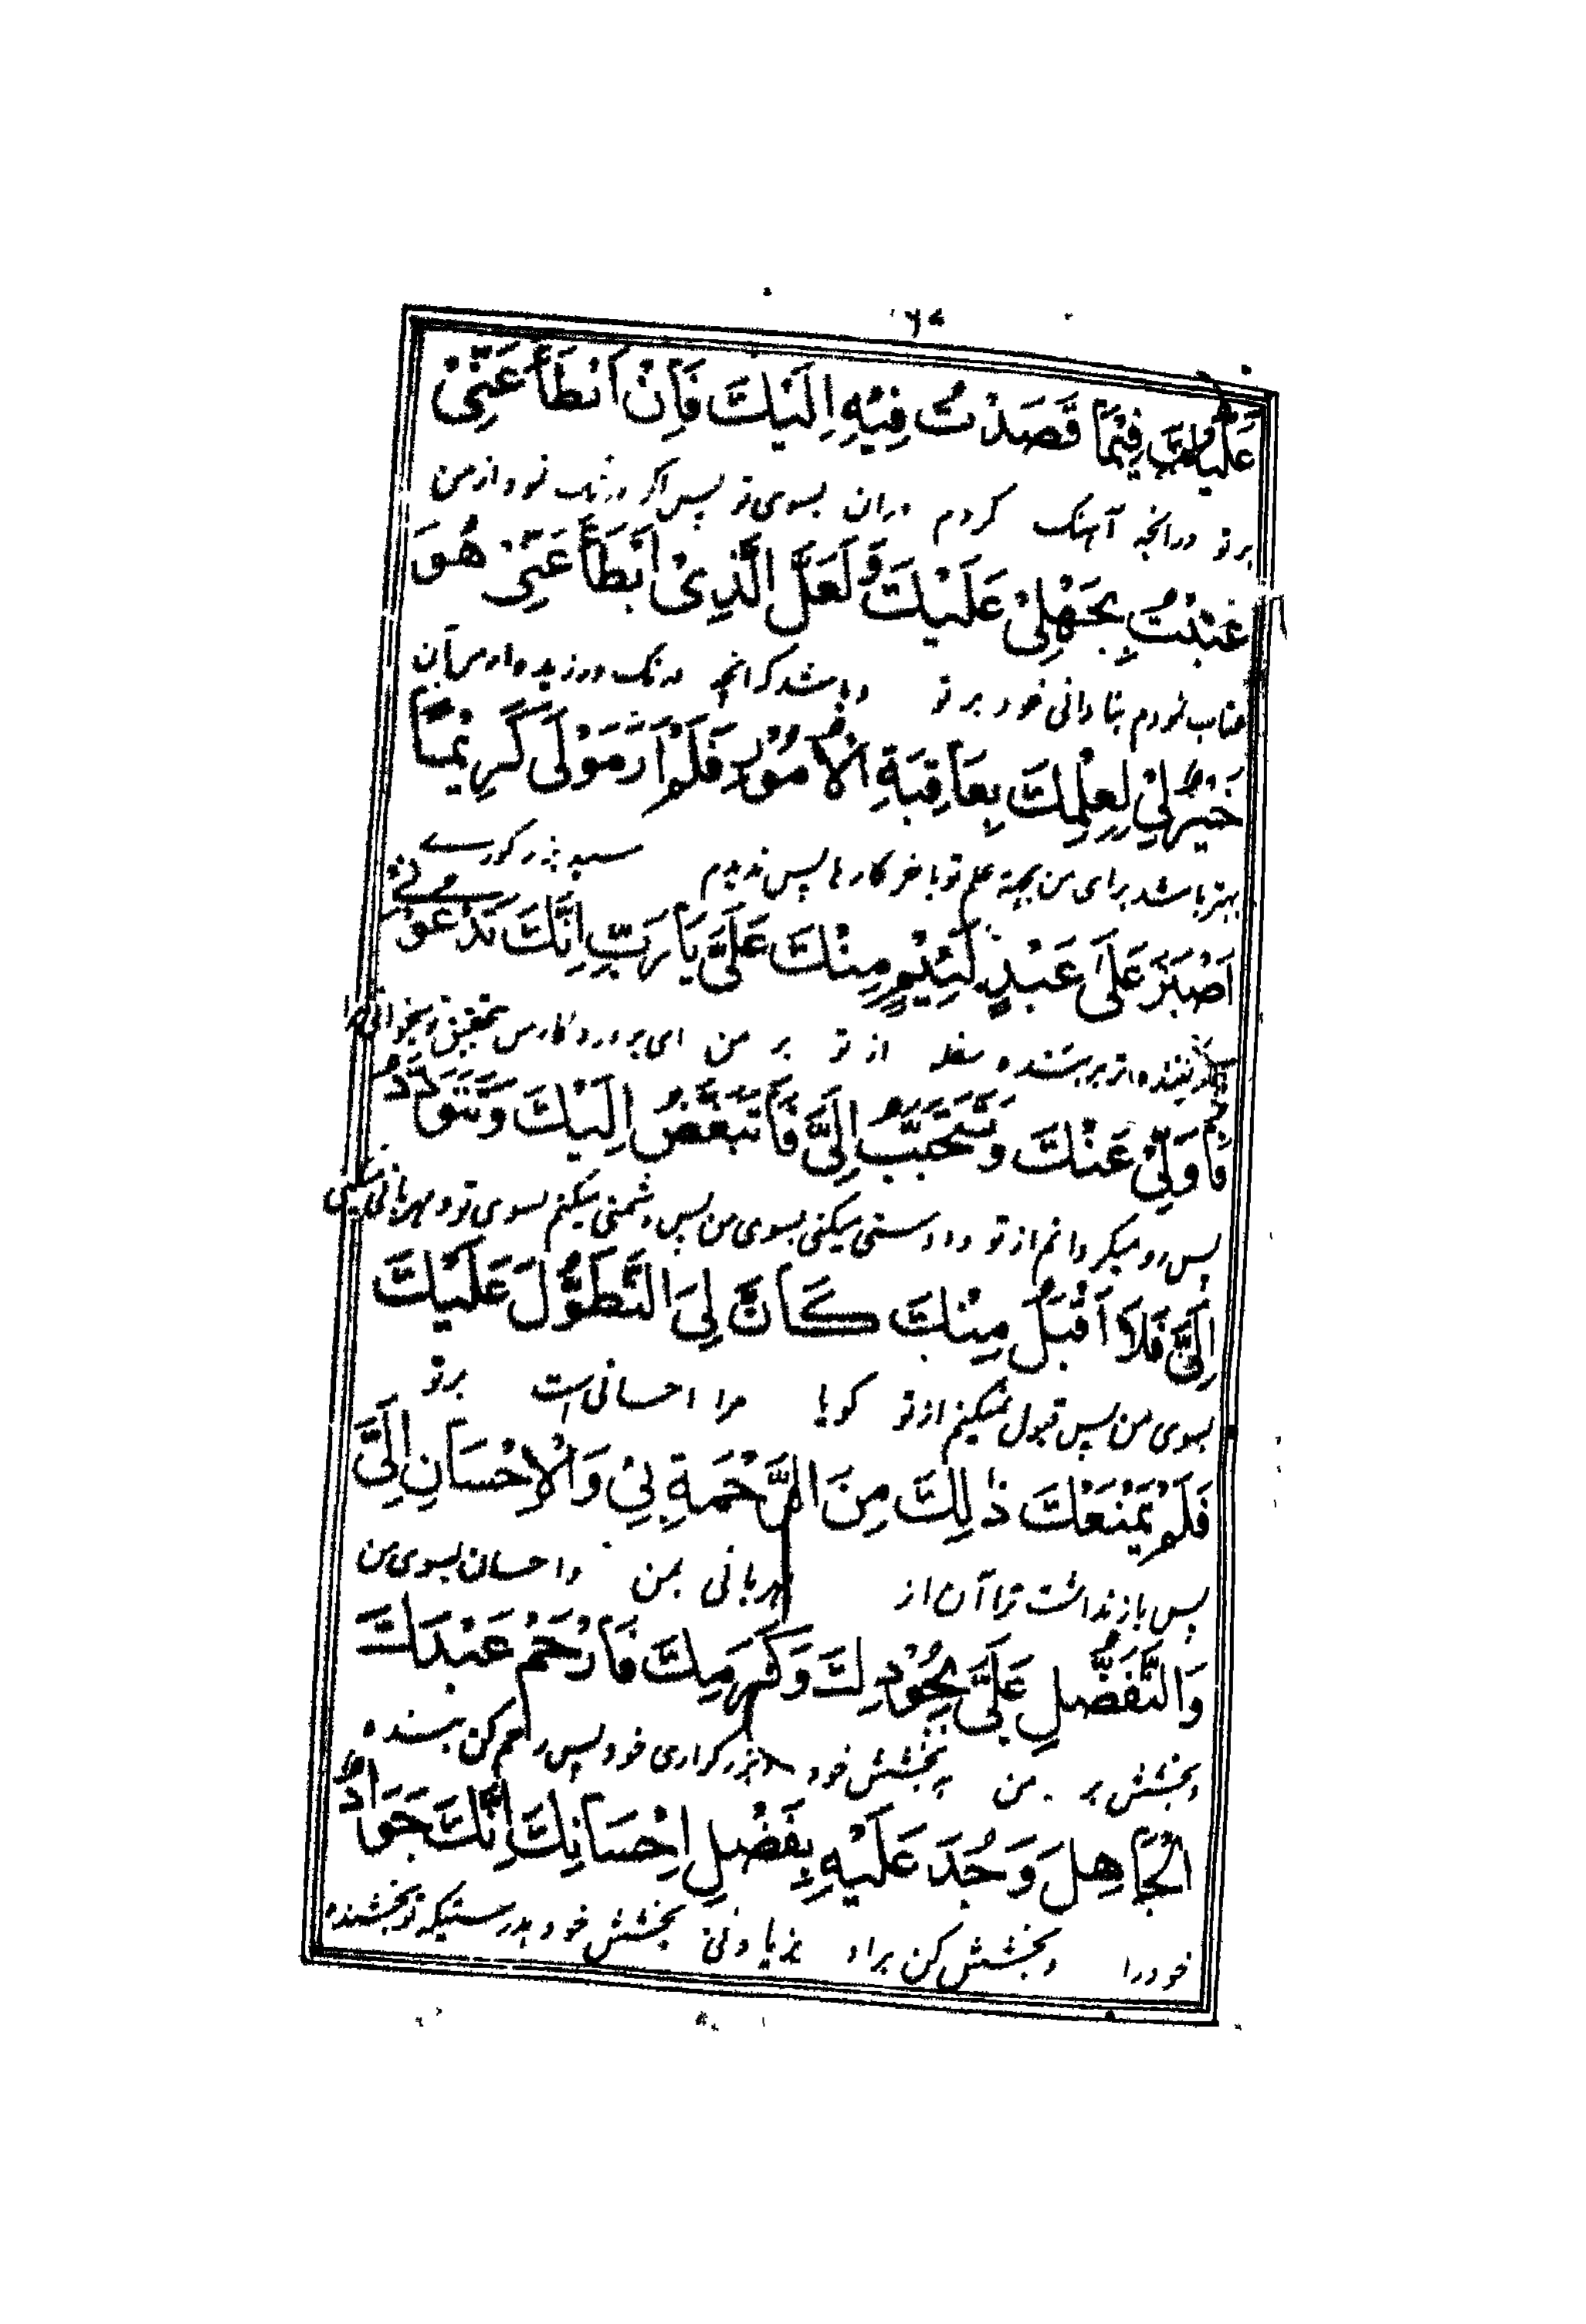 عَلَيْكَ فِيْمَا قَصَدْتُ فِيْهِ اِلَيْكَ فَاِنْ اَبْطَأَ عَنِّىْ
بر تو درانچه آهنک کردم دران بسوی تو پس اکر درنک نمود از من
عَتَبْتُ بِجَهْلِىْ عَلَيْكَ وَلَعَلَّ الَّذِىْ اَبْطَأَ عَنِّىْ هُوَ
عتاب نمودم بنادانی خود بر تو و باشد که انچه درنک ورزیده از من آن
خَيْرٌ لِىْ لِعِلْمِكَ بِعَاقِبَةِ الْاُمُوْرِ فَلَمْ اَرَ مَوْلًى كَرِيْمًا
بهتر باشد برای من بجهة علم تو باخر کارها پس ندیدم
اَصْبَرَ عَلٰى عَبْدٍ لَئِيْمٍ مِنْكَ عَلَىَّ يَا رَبِّ اِنَّكَ تَدْعُوْنِىْ
از تو بر من ای پروردکار من بتحقیق تو میخوانی مرا
فَاُوَلِّىْ عَنْكَ وَتَتَحَبَّبُ اِلَىَّ فَاَتَبَغَّضُ اِلَيْكَ وَتَتَوَدَّدُ
پس رو میکردانم از تو و دوستی میکنی بسوی من پس دشمنی میکنم بسوی تو و مهربانی میکنی
اِلَىَّ فَلَا اَقْبَلُ مِنْكَ كَاَنَّ لِىَ التَّطَوُّلَ عَلَيْكَ
بسوی من پس قبول نمیکنم از تو کویا مرا احسانی است بر تو
فَلَمْ يَمْنَعْكَ ذٰلِكَ مِنَ الرَّحْمَةِ بِىْ وَالْاِحْسَانِ اِلَىَّ
پس باز نداشت ترا آن از مهربانی بمن و احسان بسوی من
وَالتَّفَضُّلِ عَلَىَّ بِجُوْدِكَ وَكَرَمِكَ فَارْحَمْ عَبْدَكَ
و بخشش بر من به بخشش خود و بزرکواری خود پس رحم کن بنده
الْجَاهِلَ وَجُدْ عَلَيْهِ بِفَضْلِ اِحْسَانِكَ اِنَّكَ جَوَادٌ
خود را و بخشش کن براو بزیادتی بخشش خود بدرستیکه تو بخشنده